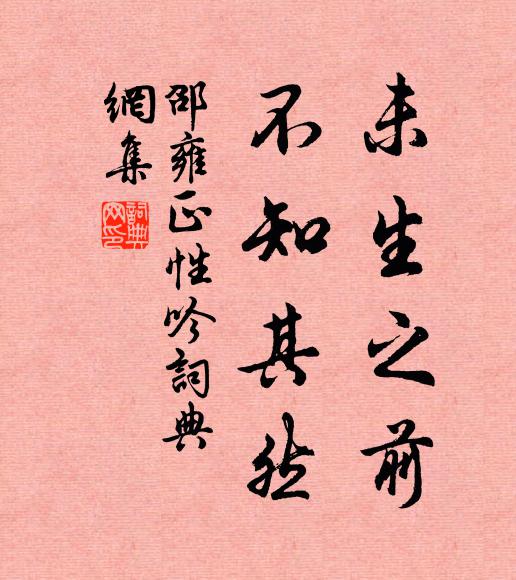 未生之前
不知其然
邵雍正性吟詞典
網集
詞典網印